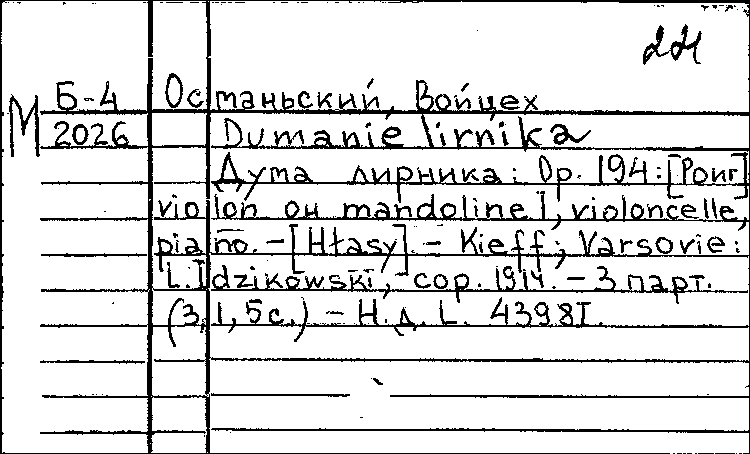 221
Б-4 Останьский, Войцех
М 2026 Dumanie lirnika
Дума лирника: Op. 194: [Pour]
violon ou mandoline], violoncelle,
piano. - [Hłasy]. - Kieff; Varsovie:
L. Idzikowski, cop. 1914. - 3 парт.
(3, 1, 5 с.) - Н. д. L. 4398I.